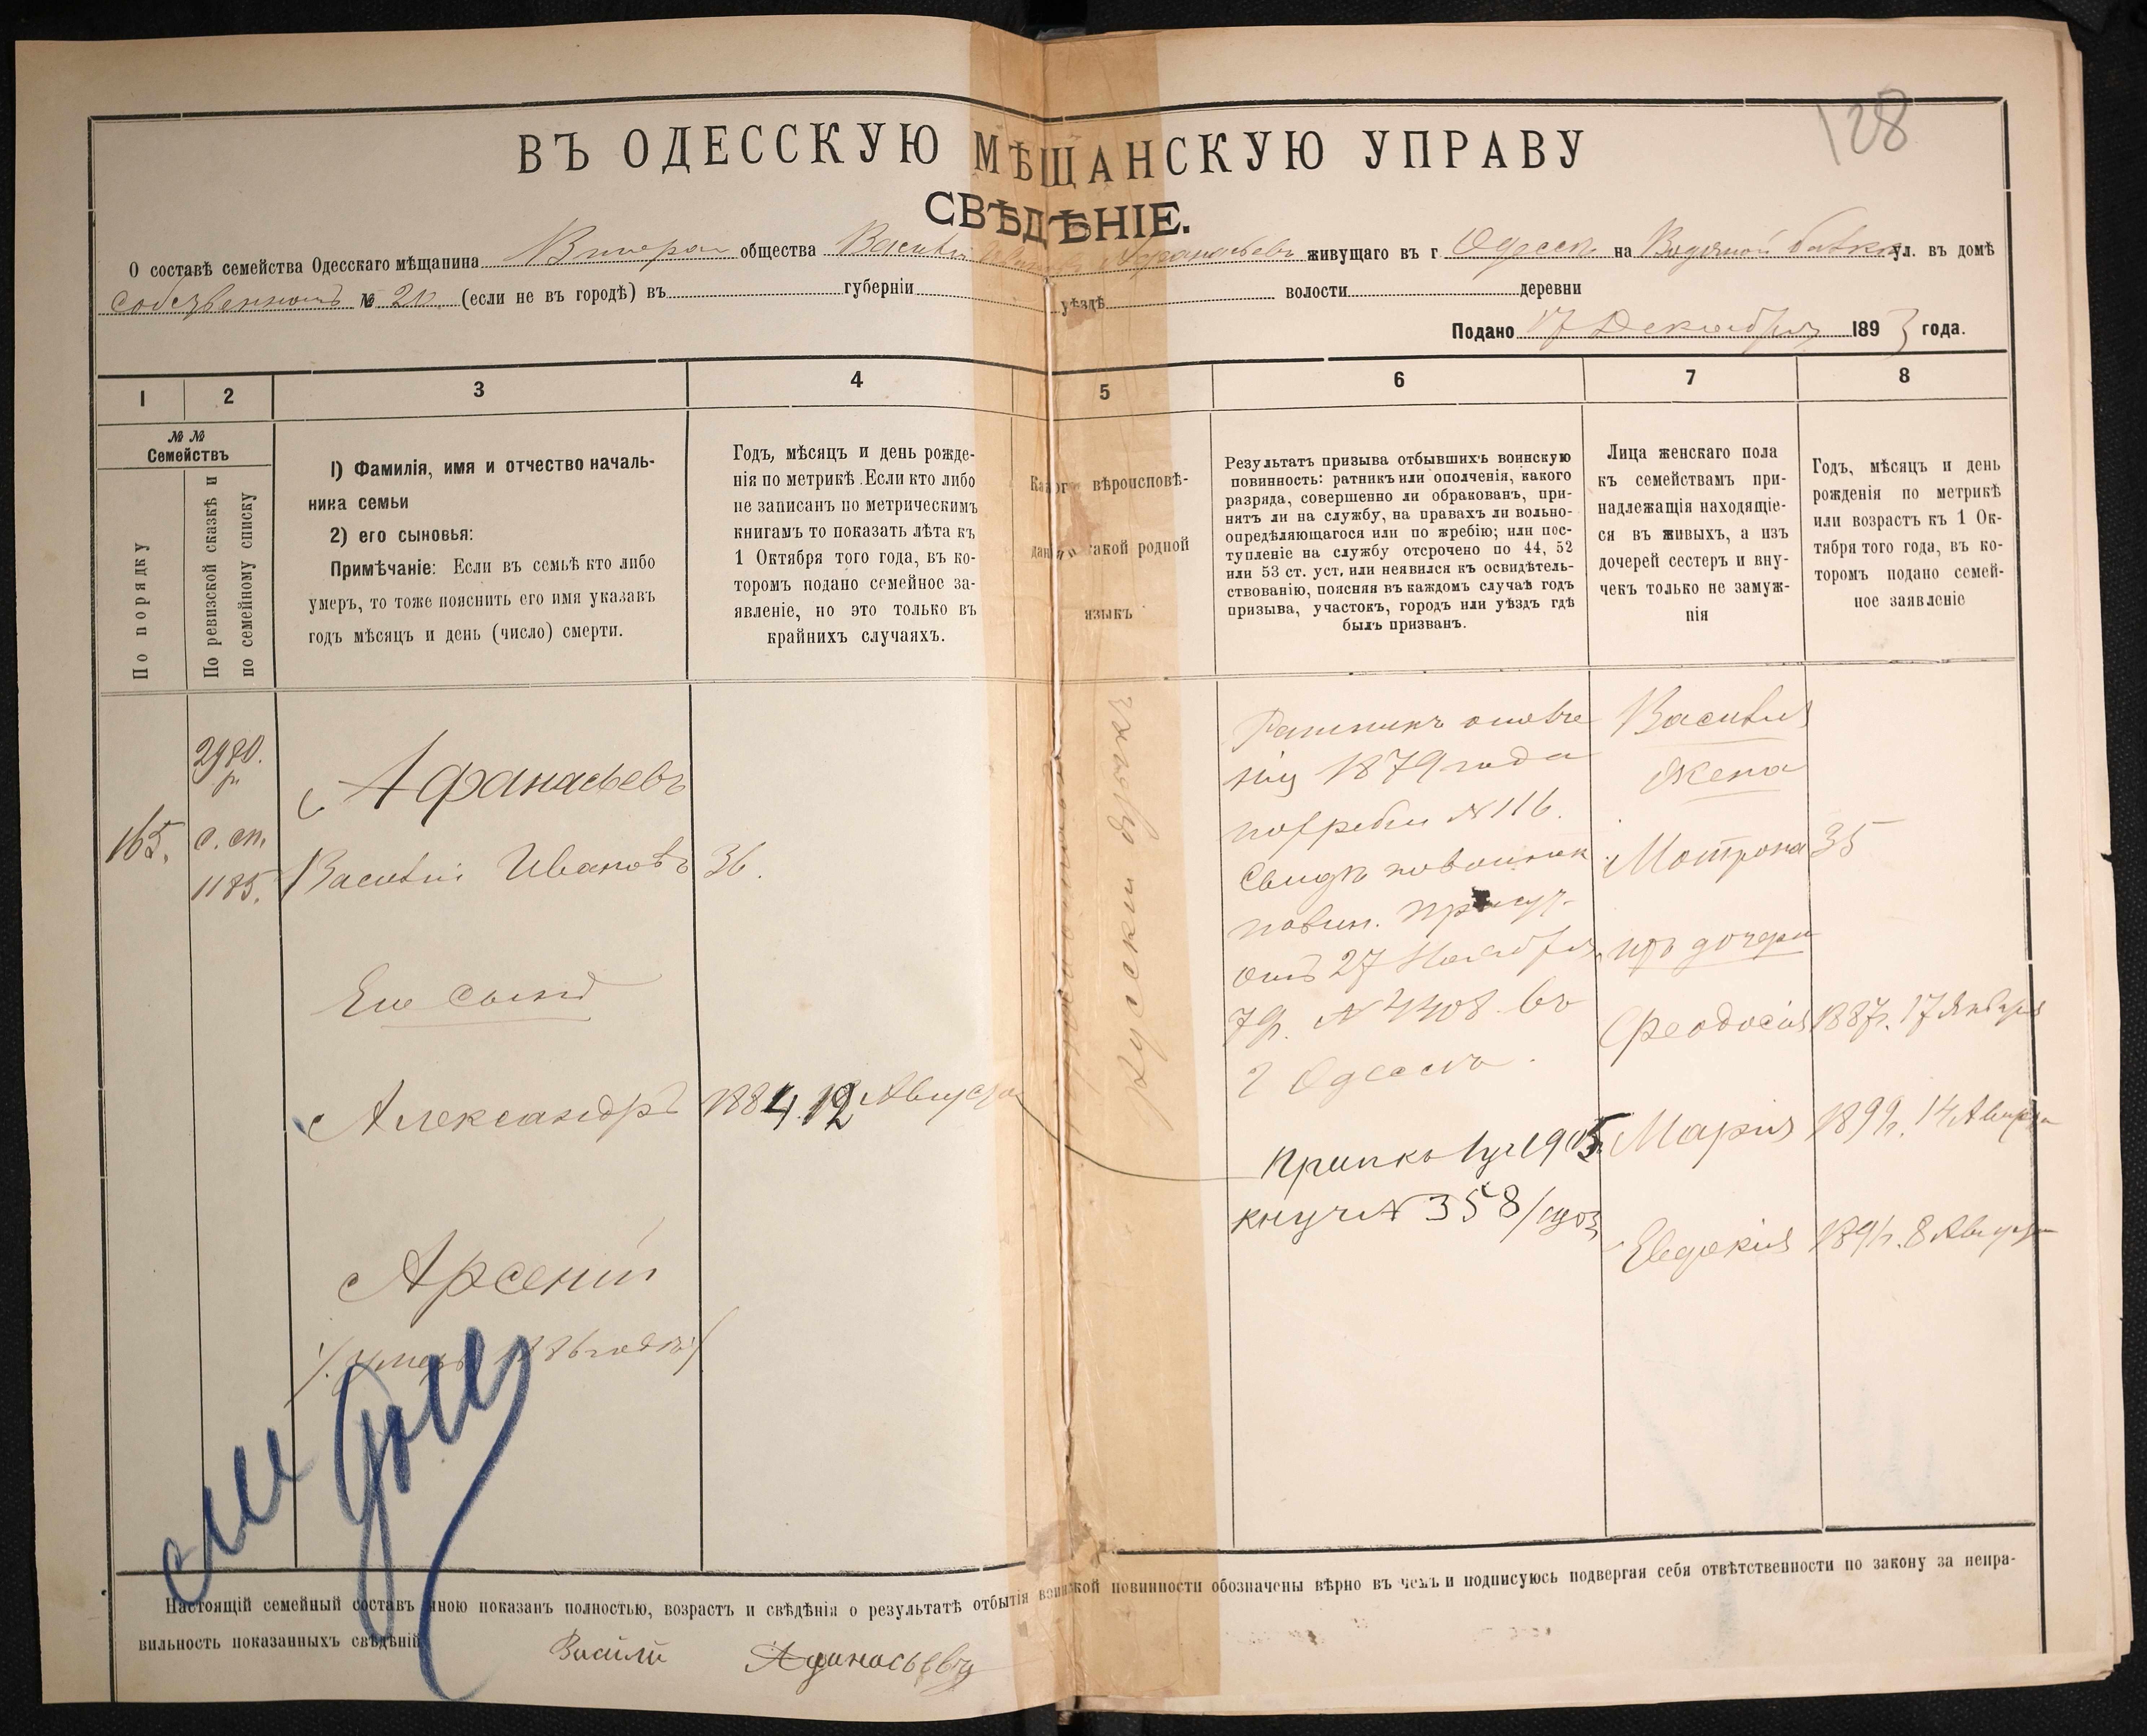 128
ВЪ ОДЕССКУЮ МѢЩАНСКУЮ УПРАВУ
СВѢДѢНІЕ.
О составѣ семейства Одесскаго мѣщанина общества Василія Иванова Афанасьева живущаго въ г Одессѣ на Водяной балкѣ ул. въ домѣ
собственномъ № 20 (если не въ городѣ) въ губерніи уѣздѣ волости деревни
Подано 17 Декабря 1893 года.
1 2 3 4 5 6 7 8
№ №
Семействъ
По порядку
По ревизской сказкѣ и
по семейному списку
1) Фамилія, имя и отчество началь-
ника семьи
2) его сыновья:
Примѣчаніе: Если въ семьѣ кто либо
умеръ, то тоже пояснить его имя указавъ
годъ мѣсяцъ и день (число) смерти.
Годъ, мѣсяцъ и день рожде-
нія по метрикѣ. Если кто либо
не записанъ по метрическимъ
книгамъ то показать лѣта къ
1 Октября того года, въ ко-
торомъ подано семейное за-
явленіе, но это только въ
крайнихъ случаяхъ.
вѣроисповѣ-
какой родной
языкъ
Результатъ призыва отбывшихъ воинскую
повинность: ратникъ или ополченія, какого
разряда, совершенно ли обракованъ, при-
нятъ ли на службу, на правахъ ли вольно-
опредѣляющагося или по жребію; или пос-
тупленіе на службу отсрочено по 44, 52
или 53 ст. уст. или неявился къ освидѣтель-
ствованію, поясняя въ каждомъ случаѣ годъ
призыва, участокъ, городъ или уѣздъ гдѣ
былъ призванъ.
Лица женскаго пола
къ семействамъ при-
надлежащія находящіе-
ся въ живыхъ, а изъ
дочерей сестеръ и вну-
чекъ только не замуж-
нія
Годъ, мѣсяцъ и день
рожденія по метрикѣ
или возрастъ къ 1 Ок-
тября того года, въ ко-
торомъ подано семей-
ное заявленіе
165.
2980.
р.
с. сп.
1185.
Афанасьевъ
Василій Ивановъ 36.
Его сынъ
Александръ 1884. 12 Августа
Арсеній
умеръ 1886 года
русскій языкъ
Ратникъ ополче
нія 1879 года
по жребію № 116.
Свид. по воинск
повин. Присут.
отъ 27 Ноября
79г. № 4408 въ
г Одессѣ.
1905
№ 358
Василія
жена
Мотрона 35
ихъ дочери
Феодосія 1887г. 17 Января
Марія 14 Августа
Евдокія 1891г. 8 Августа
Настоящій семейный составъ мною показанъ полностью, возрастъ и свѣдѣнія о результатѣ отбытія воинской повинности обозначены вѣрно въ чемъ и подписуюсь подвергая себя отвѣтственности по закону за непра-
вильность показанныхъ свѣдѣній
Василій Афанасьевъ